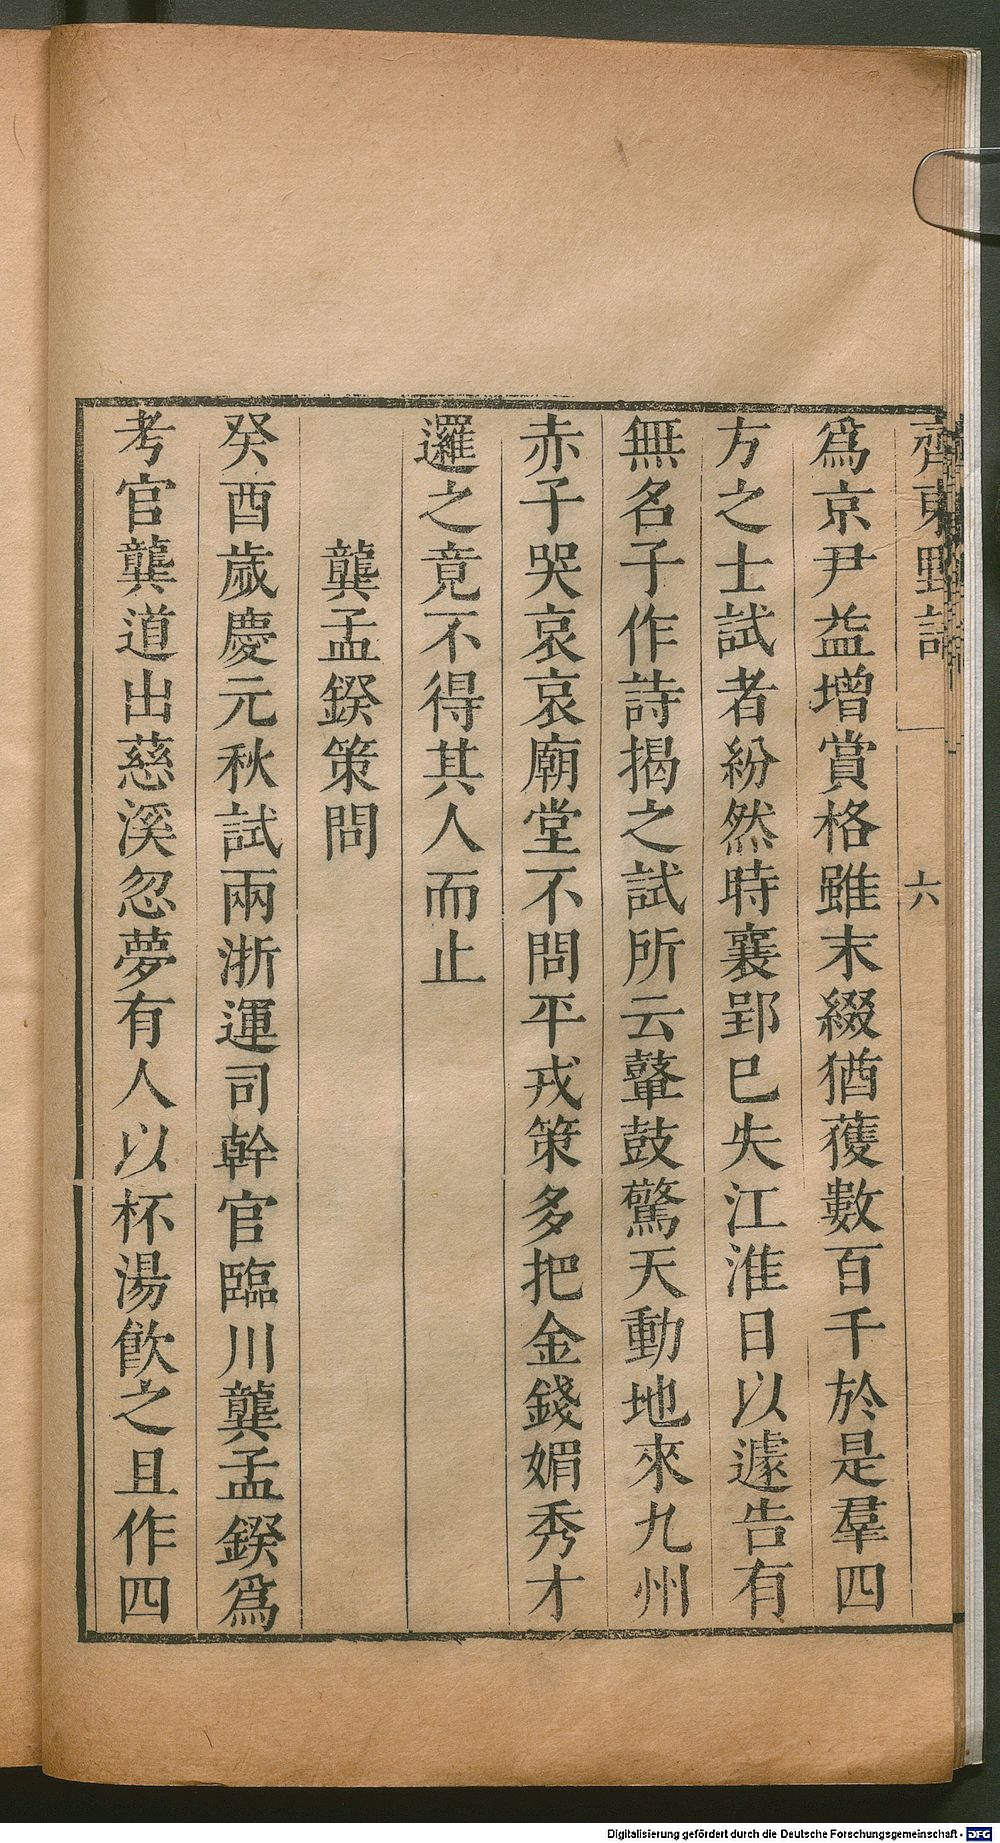 齊東野語 六
爲京尹益增賞格雖末綴猶獲數百千於是羣四
方之士試者紛然時襄郢已失江淮日以遽告有
無名子作詩揭之試所云鼙鼓驚天動地來九州
赤子哭哀哀廟堂不問平戎策多把金錢媚秀才
邏之竟不得其人而止
龔孟鍨策問
癸酉歲慶元秋試兩浙運司幹官臨川龔孟鍨爲
考官龔道出慈溪忽夢有人以杯湯飮之且作四
Digitalisierung gefördert durch die Deutsche Forschungsgemeinschaft - DFG